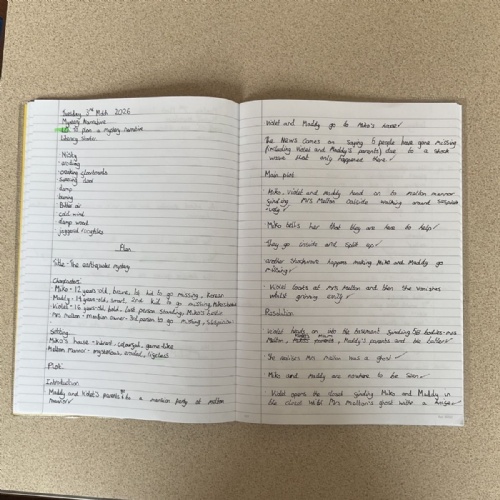 Tuesday 3rd March 2026
Mystery Narrative
LO: To plan a mystery narrative
Literacy Shed
Misty
creaking floorboards
damp
Bitter air
cold wind
damp wood
jagged
Plan
Title - The earthquake mystery
Characters
Miko - 12 years old, brave, 1st kid to go missing, Korean
Maddy - 14 years old, smart, 2nd kid to go missing,
Violet - 16 years old, bold, last person standing, Miko's
Mrs Malton - mansion owner, 3rd person to go missing,
Setting
Miko's house - vibrant, colourful, game-like
Malton Mannor - mysterious, eroded, lifeless
Plot
Introduction
Maddy and Violet's parents go to a mansion party at malton
mannor
Violet and Maddy go to Miko's house
The News comes on saying 6 people have gone missing
(including Violet and Maddy's parents) due to a shock
wave that only happened there.
Main plot
Miko, Violet and Maddy head on to malton mannor
finding Mrs Malton outside walking around
Miko tells her that they are here to help
They go inside and split up
Another shockwave happens making Miko and Maddy go
missing
Violet looks at Mrs Malton and then she vanishes
whilst grinning evily
Resolution
Violet heads on into the basement finding bodies - mrs
Malton, parents, Maddy's parents and the butler
She decides Mrs Malton was a ghost
Miko and Maddy are nowhere to be seen
Violet opens the closet finding Miko and Maddy in
the closet with Mrs Malton's ghost with a